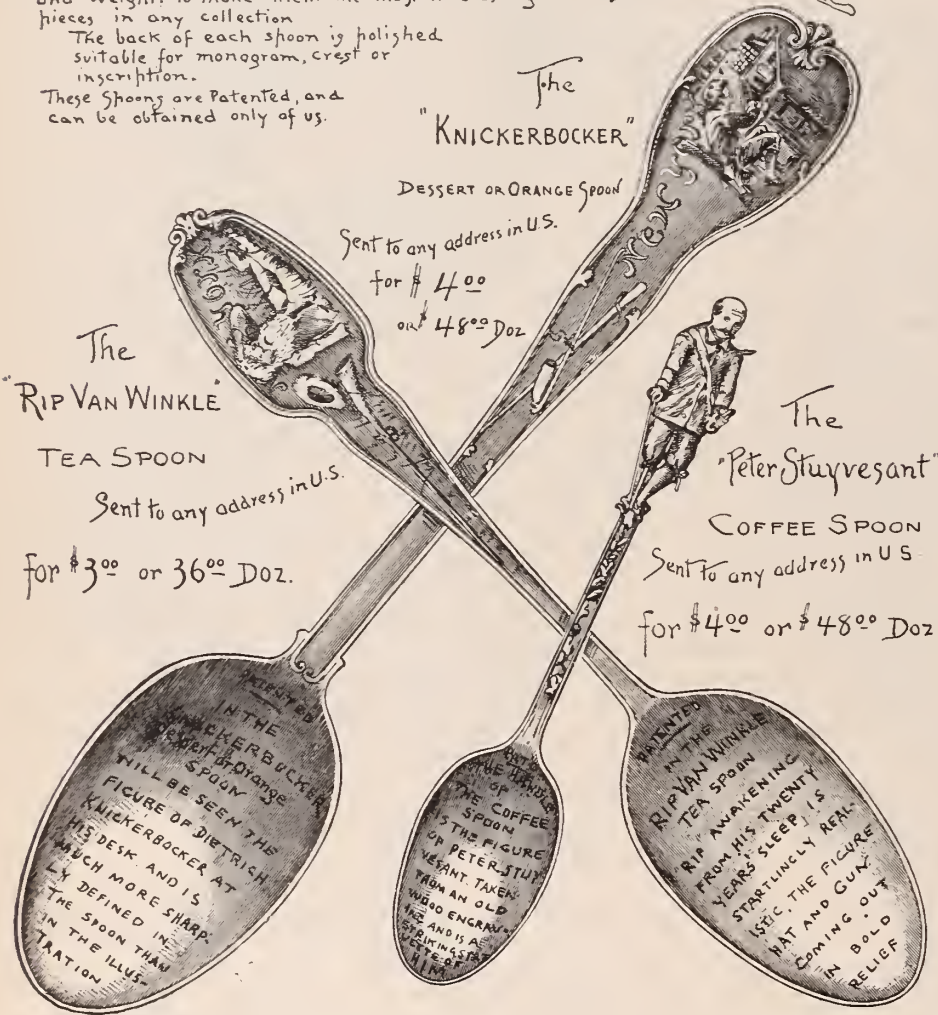 pieces in any collection
The back of each spoon is polished
suitable for monogram, crest or
inscription.
These Spoons are Patented, and
can be obtained only of us.
The
"KNICKERBOCKER"
DESSERT OR ORANGE SPOON
Sent to any address in U.S.
for $4.00
or $48.00 Doz
The
"RIP VAN WINKLE"
TEA SPOON
Sent to any address in U.S.
for $3.00 or 36.00 Doz.
The
"Peter Stuyvesant"
COFFEE SPOON
Sent to any address in U S
for $4.00 or $48.00 Doz
New
PATENTED
IN THE
KNICKERBUCKER
Dessert or Orange
SPOON
WILL BE SEEN THE
FIGURE OF DIETRICH
KNICKERBOCKER AT
HIS DESK AND IS
MUCH MORE SHARP-
LY DEFINED IN
THE SPOON THAN
IN THE ILLUS-
TRATION
THE HANDLE
OF
THE COFFEE
SPOON
IS THE FIGURE
OF PETER STUY
VESANT. TAKEN
FROM AN OLD
WOOD ENGRAV-
ING AND IS A
STRIKING STAT
UETTE OF
HIM
PATENTED
IN THE
RIP VAN WINKLE
TEA SPOON
RIP AWAKENING
FROM HIS TWENTY
YEARS SLEEP, IS
STARTLINGLY REAL-
ISTIC. THE FIGURE
HAT AND GUN
COMING OUT
IN BOLD
RELIEF